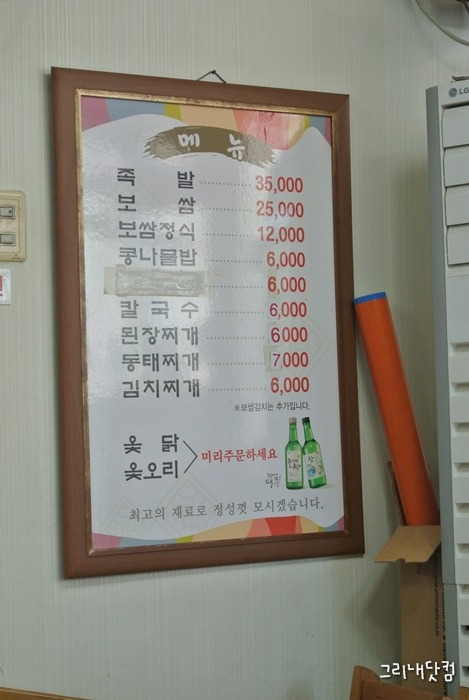 메 뉴
족 발 35,000
보 쌈 25,000
보쌈정식 12,000
콩나물밥 6,000
6,000
칼 국 수 6,000
된장찌개 6000
동태찌개 7,000
김치찌개 6,000
※보쌈김치는 추가입니다.
옻 닭
옻오리
미리주문하세요
최고의 재료로 정성껏 모시겠습니다.
LG
그리내닷컴